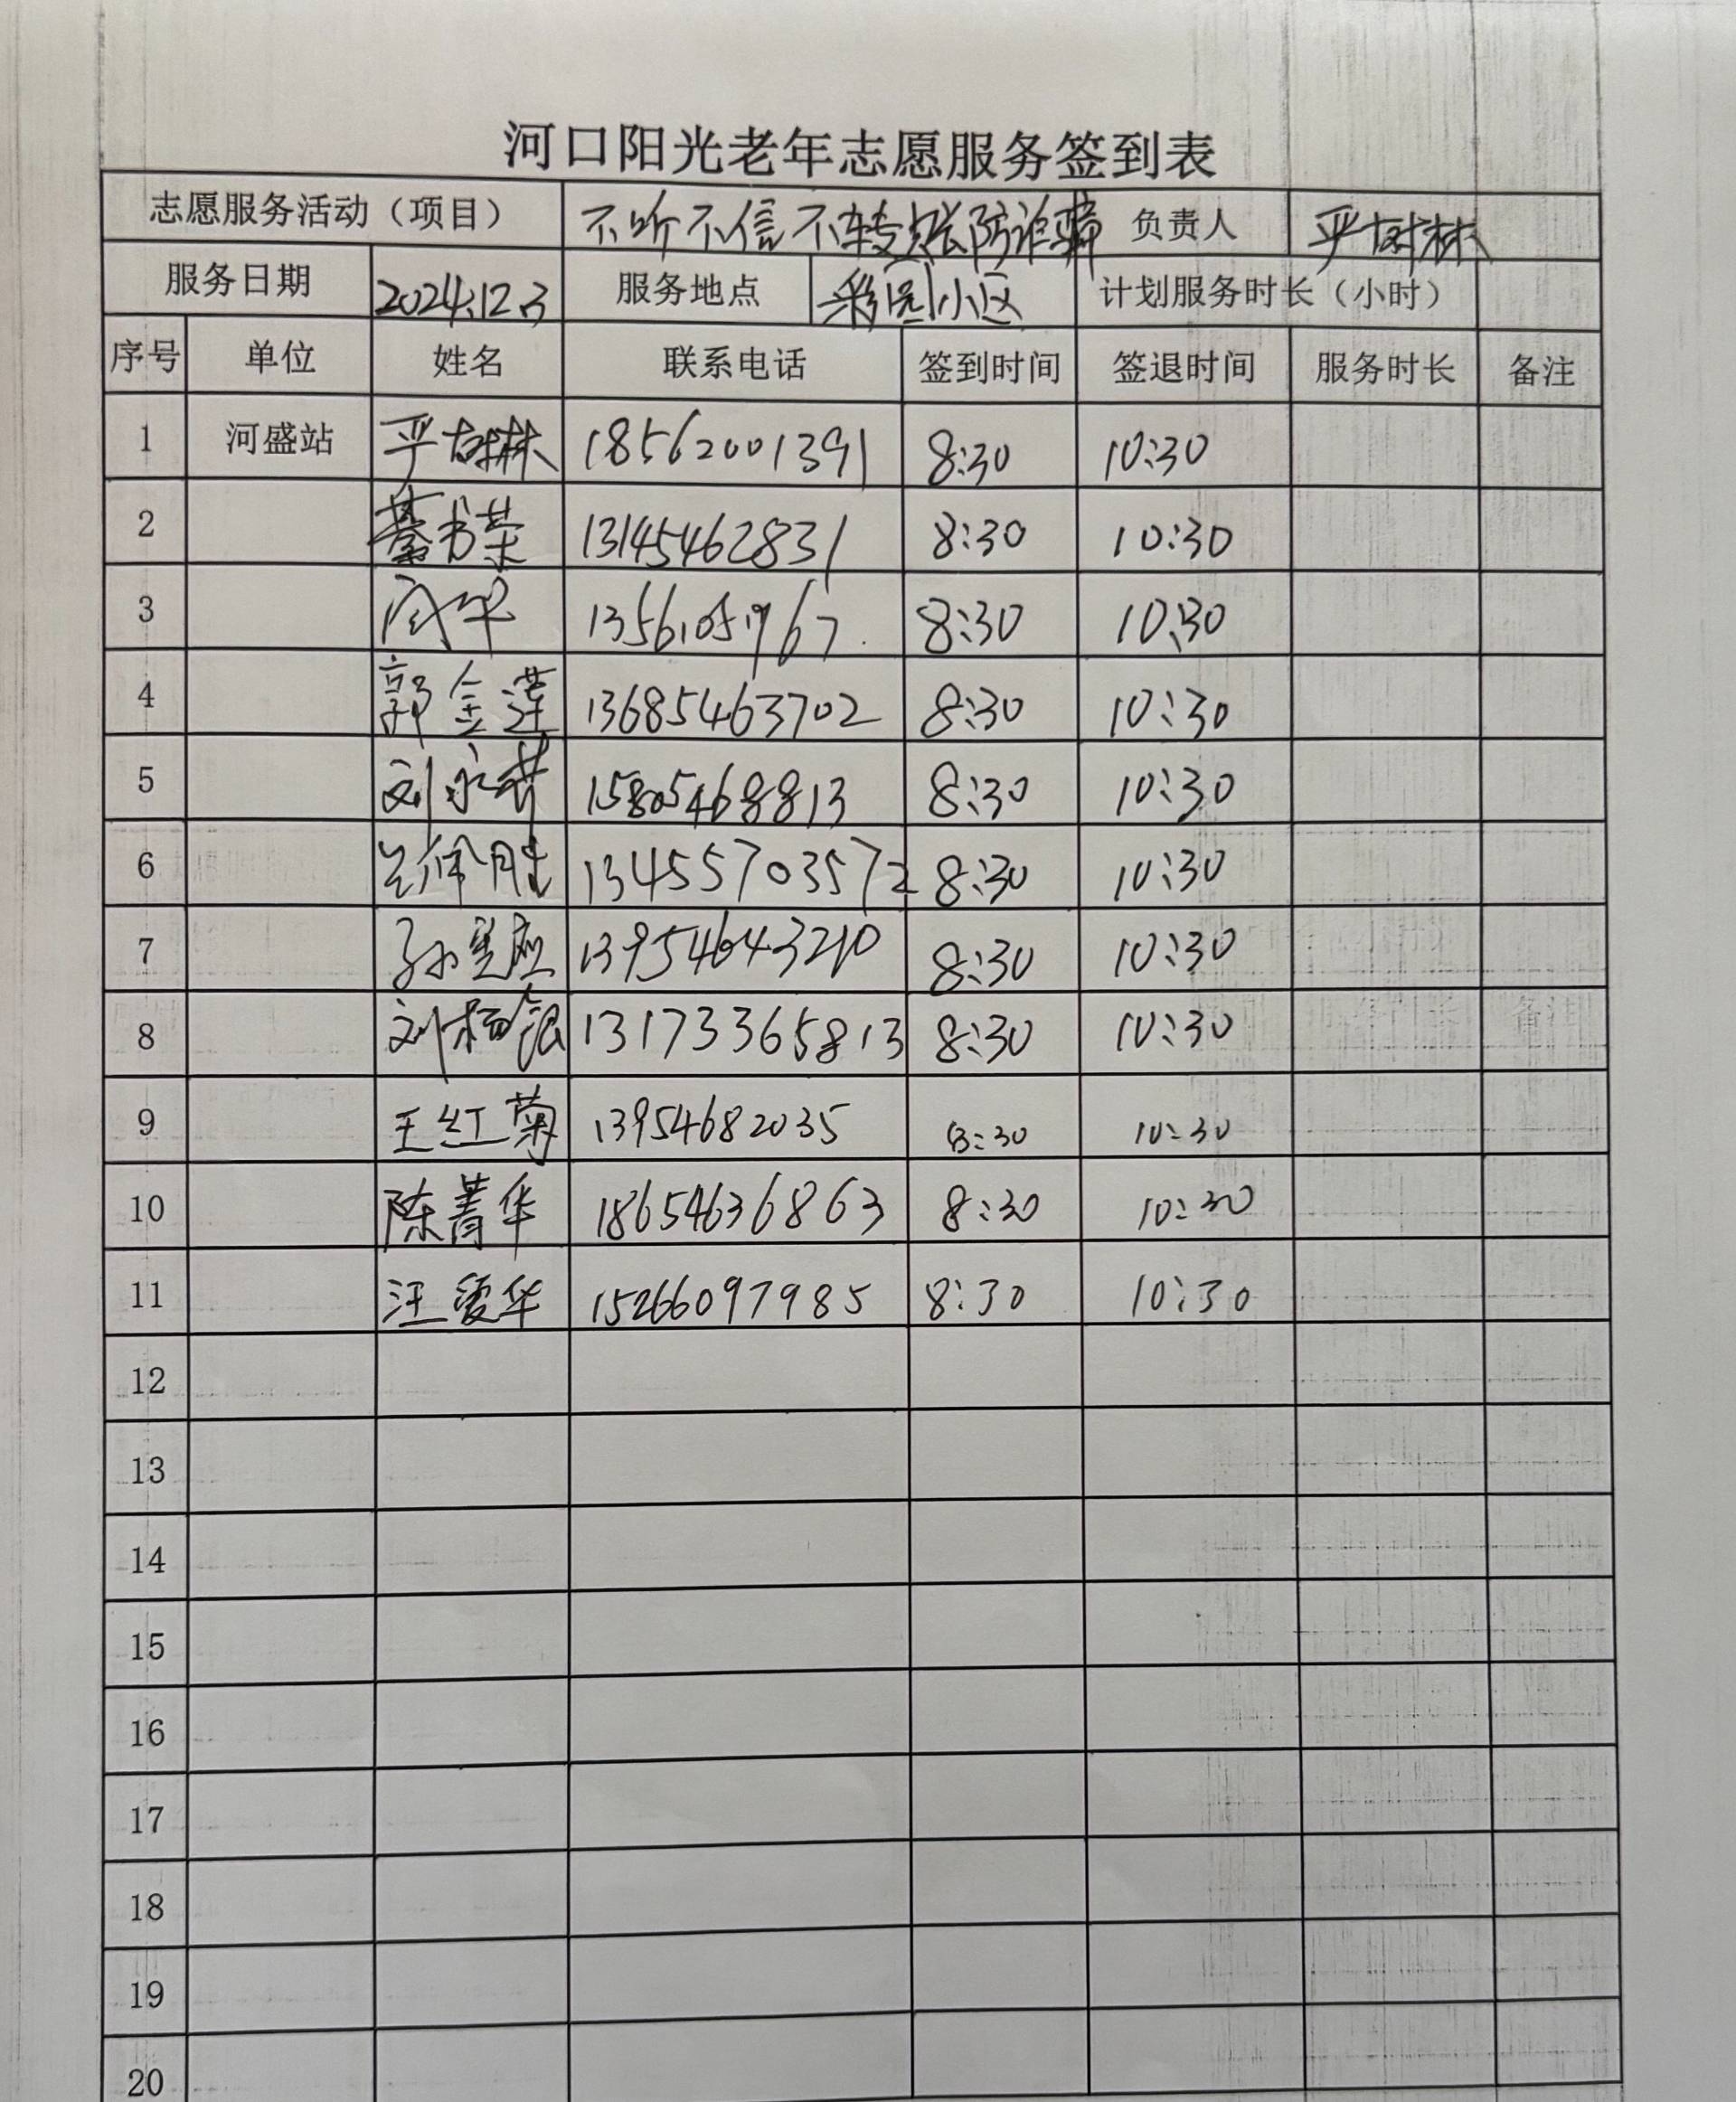 河口阳光老年志愿服务签到表
志愿服务活动（项目） 不听不信不转账防诈骗 负责人 严树林
服务日期 2024.12.3 服务地点 彩园小区 计划服务时长（小时）
序号 单位 姓名 联系电话 签到时间 签退时间 服务时长 备注
1 河盛站 严树林 18562001391 8:30 10:30
2 綦书荣 13145462831 8:30 10:30
3 8:30 10:30
4 郭金莲 13685463702 8:30 10:30
5 刘永 15805468813 8:30 10:30
6 胜 13455703572 8:30 10:30
7 孙 13954643210 8:30 10:30
8 刘杨银 13173365813 8:30 10:30
9 王红菊 13954682035 8:30 10:30
10 陈菁华 18654636863 8:30 10:30
11 汪爱华 15266097985 8:30 10:30
12
13
14
15
16
17
18
19
20